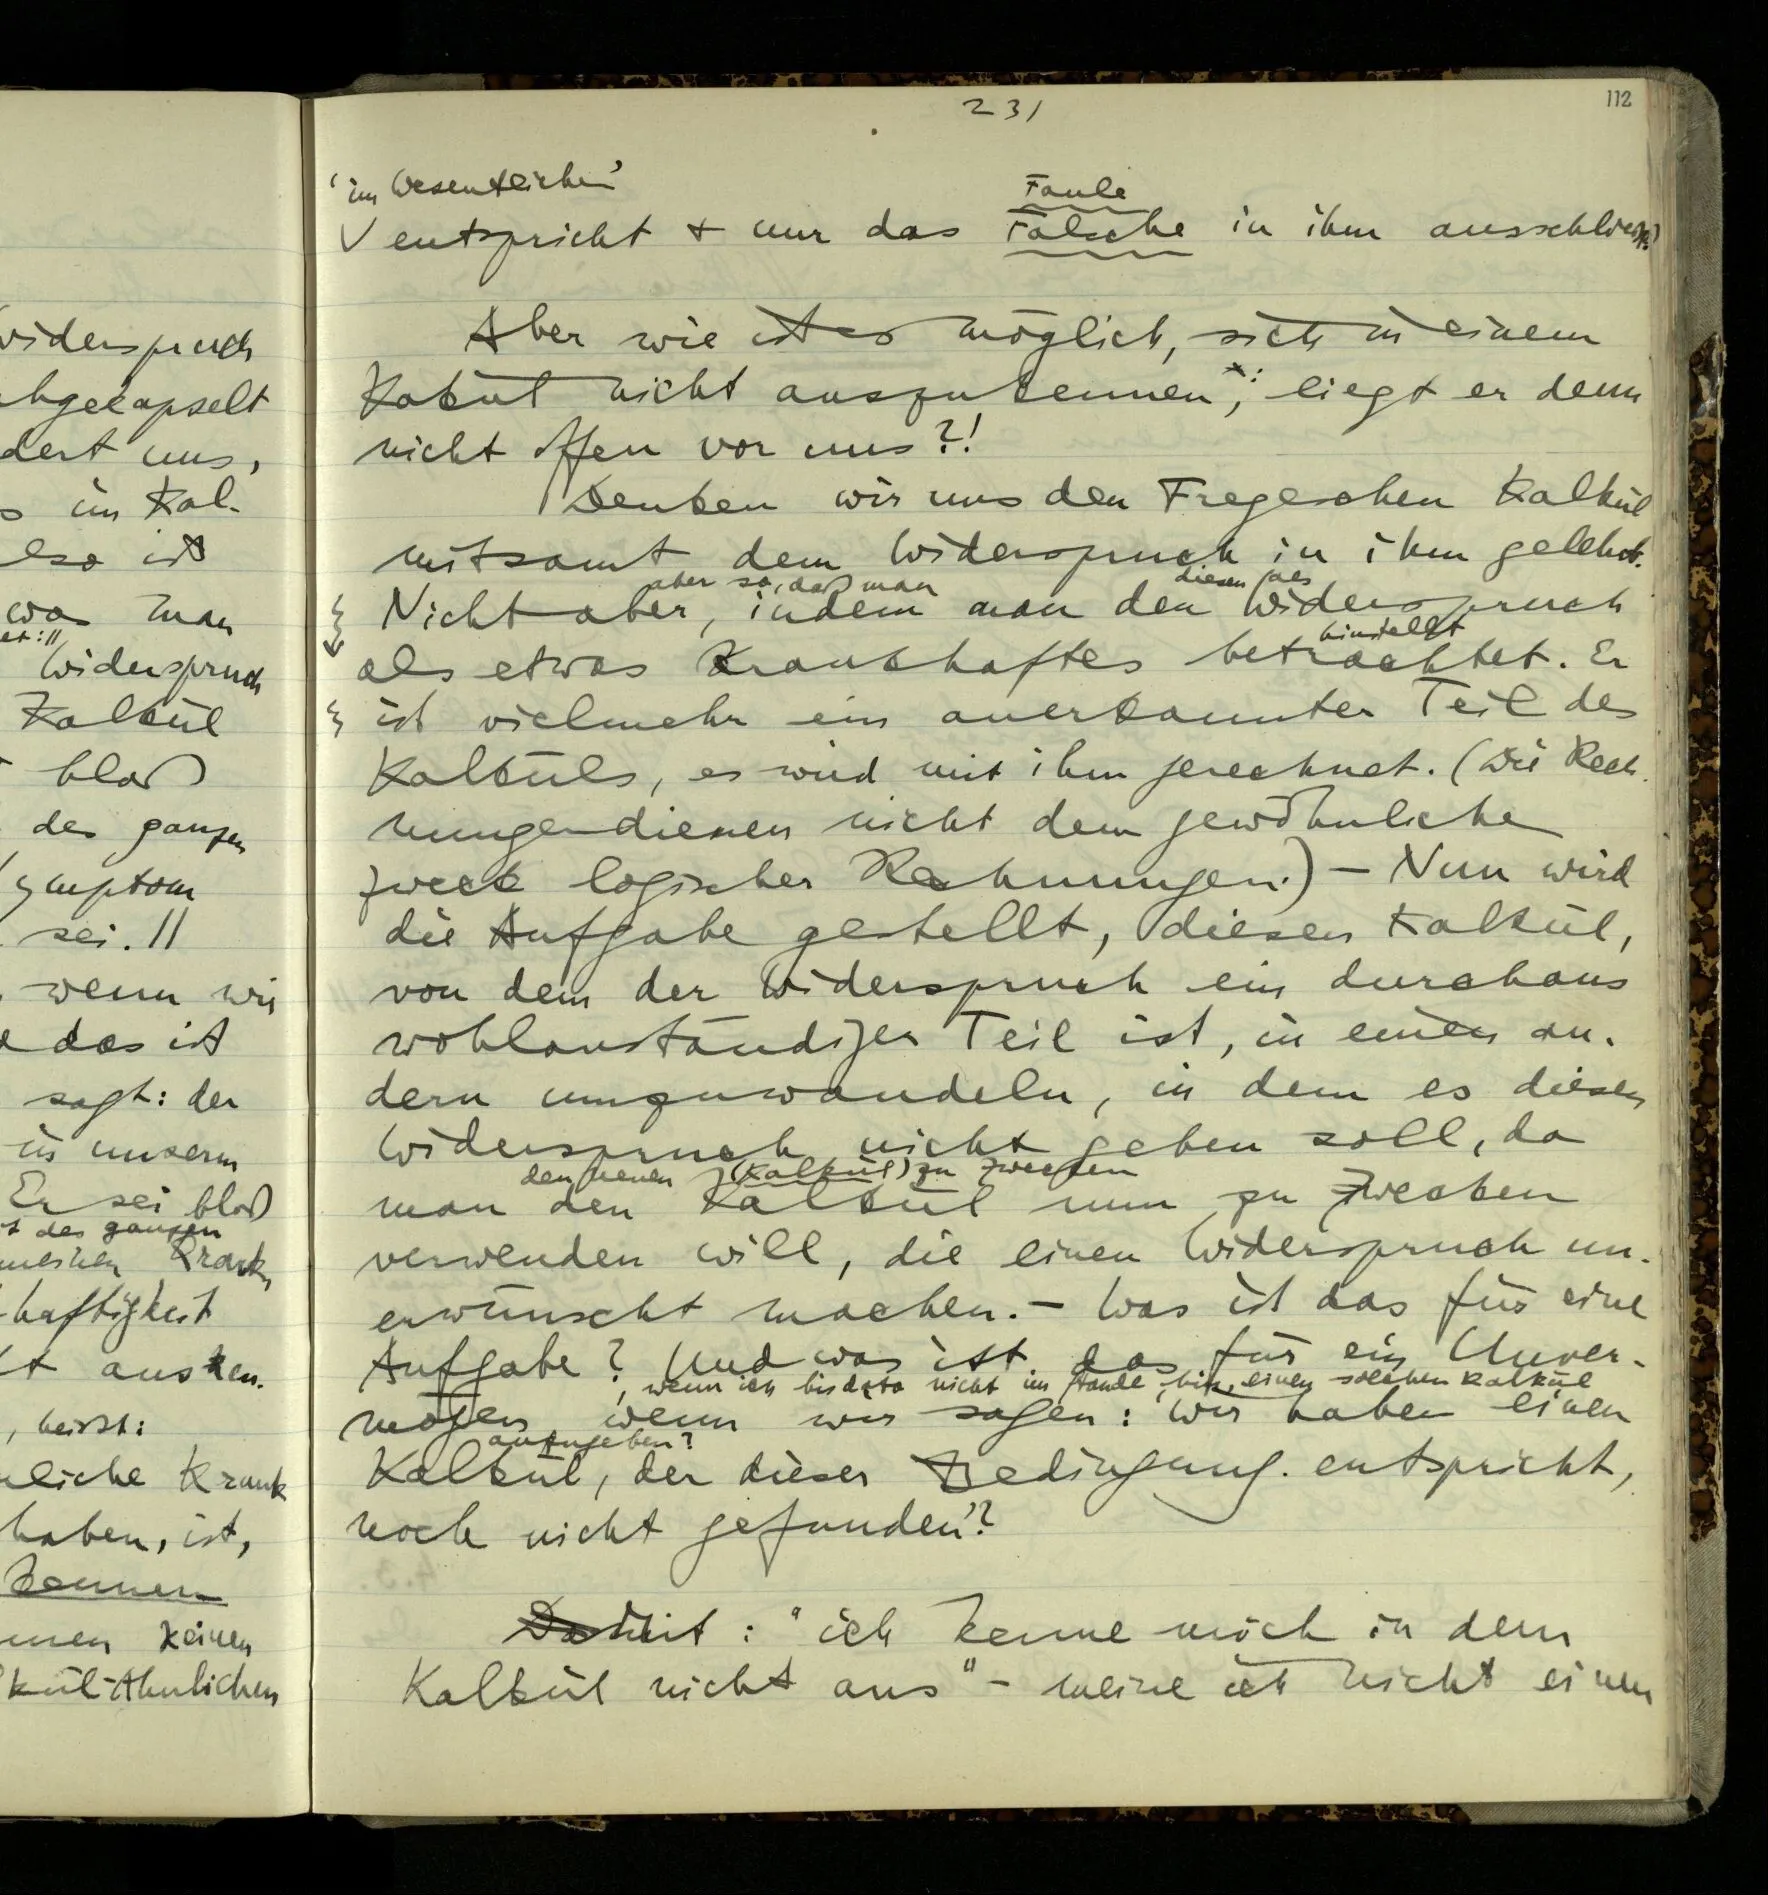 231
112
'im Wesentlichen'
Faule
entspricht + nur das Falsche in ihm ausschließt?)
Aber wie ist es möglich, sich in einem
Kalkül nicht auszukennen; liegt er denn
nicht offen vor uns?!
Denken wir uns den Fregeschen Kalkül
mitsamt dem Widerspruch in ihm gelehrt.
aber so, daß man diesen als
Nicht aber, indem man den Widerspruch
hinstellt
als etwas Krankhaftes betrachtet. Er
ist vielmehr ein anerkannter Teil des
Kalküls, es wird mit ihm gerechnet. (Die Rech-
nungen dienen nicht dem gewöhnlichen
Zweck logischer Rechnungen.) – Nun wird
die Aufgabe gestellt, diesen Kalkül,
von dem der Widerspruch ein durchaus
wohlanständiger Teil ist, in einen an-
dern umzuwandeln, in dem es diesen
Widerspruch nicht geben soll, da
den neuen (Kalkül) zu Zwecken
man den Kalkül nun zu Zwecken
verwenden will, die einen Widerspruch un-
erwünscht machen. – Was ist das für eine
Aufgabe? Und was ist das für ein Unver-
, wenn ich bis dato nicht im Stande bin, einen solchen Kalkül
mögen wenn wir sagen: 'wir haben einen
anzugeben?
Kalkül, der dieser Bedingung entspricht,
noch nicht gefunden'?
Damit: "ich kenne mich in dem
Kalkül nicht aus" – meine ich nicht einen
widerspruch
abgekapselt
dert uns,
im Kal-
also ist
wo man
Widerspruch
Kalkül
bloß
des ganzen
Symptom
sei. //
wenn wir
das ist
sagt: der
in unserm
Er sei bloß
des ganzen
Krank
haftigkeit
ausken-
, heißt:
liche Krank
haben, ist,
kennen
keinen
kül-Ähnlichen